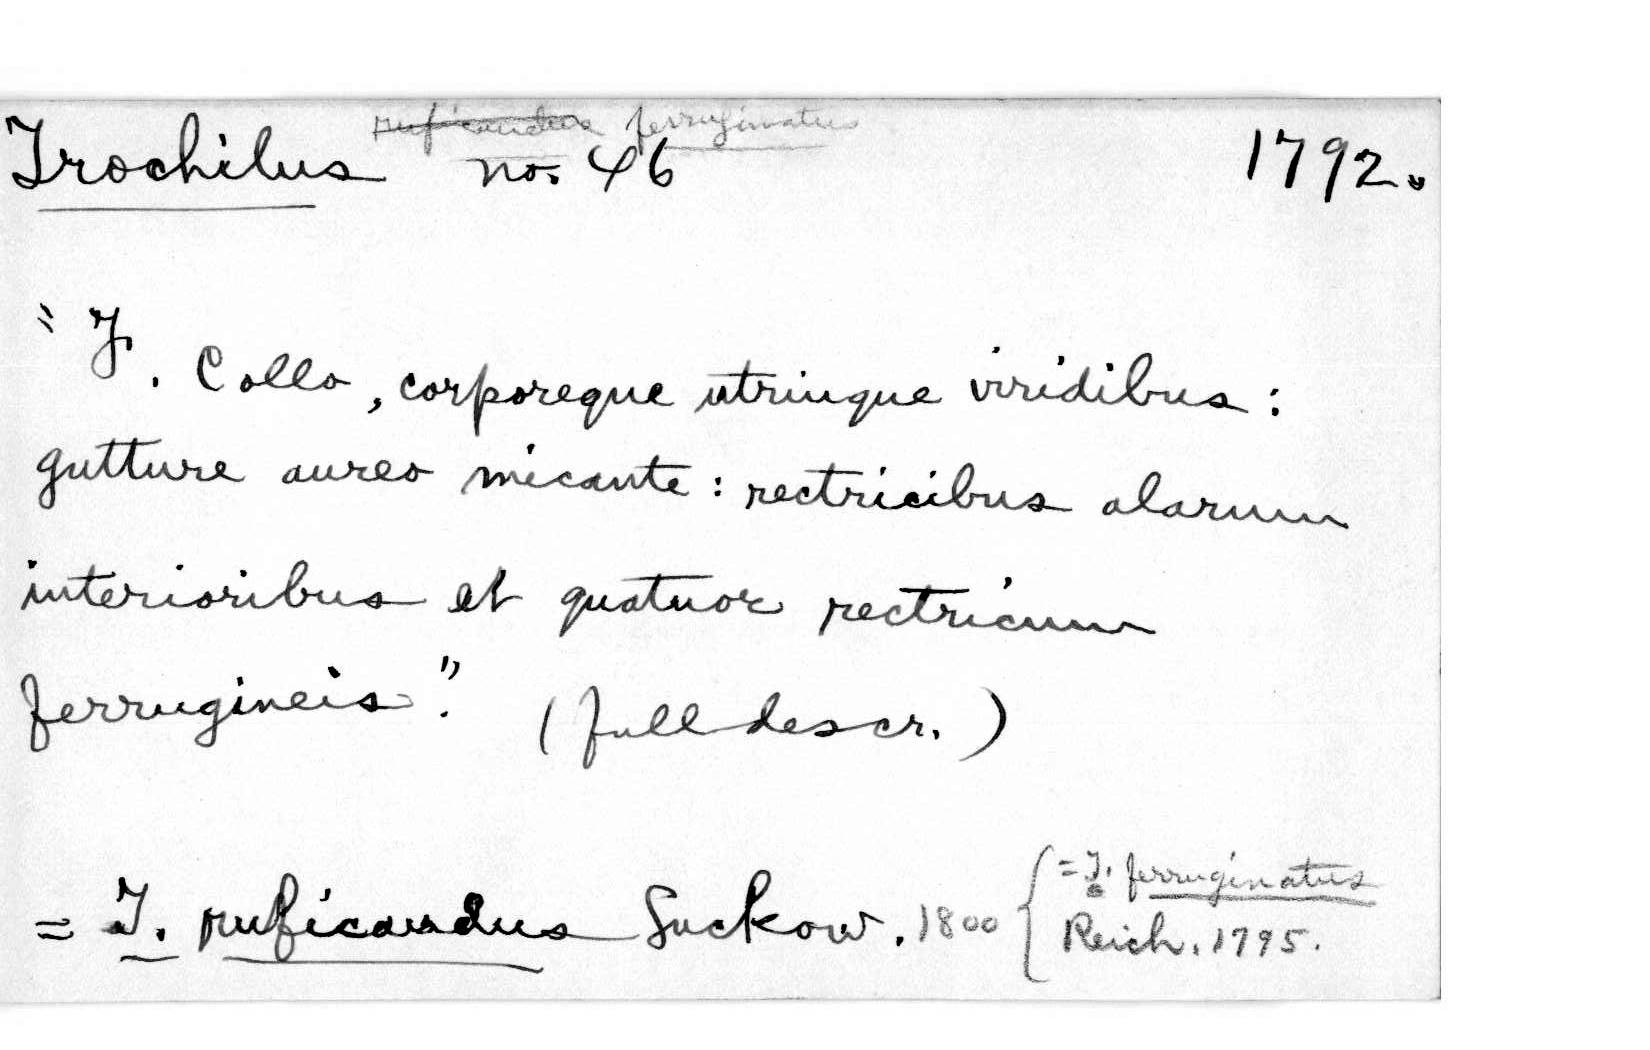 ruficaudus ferruginatus
Trochilus no. 46 1792.
"T. Collo, corporeque utrinque viridibus:
gutture aureo micante: rectricibus alarum
interioribus et quatuor rectricum
ferrugineis." (full descr.)
= T. ruficaudus Suckow. 1800 { = T. ferruginatus
Reich. 1795.